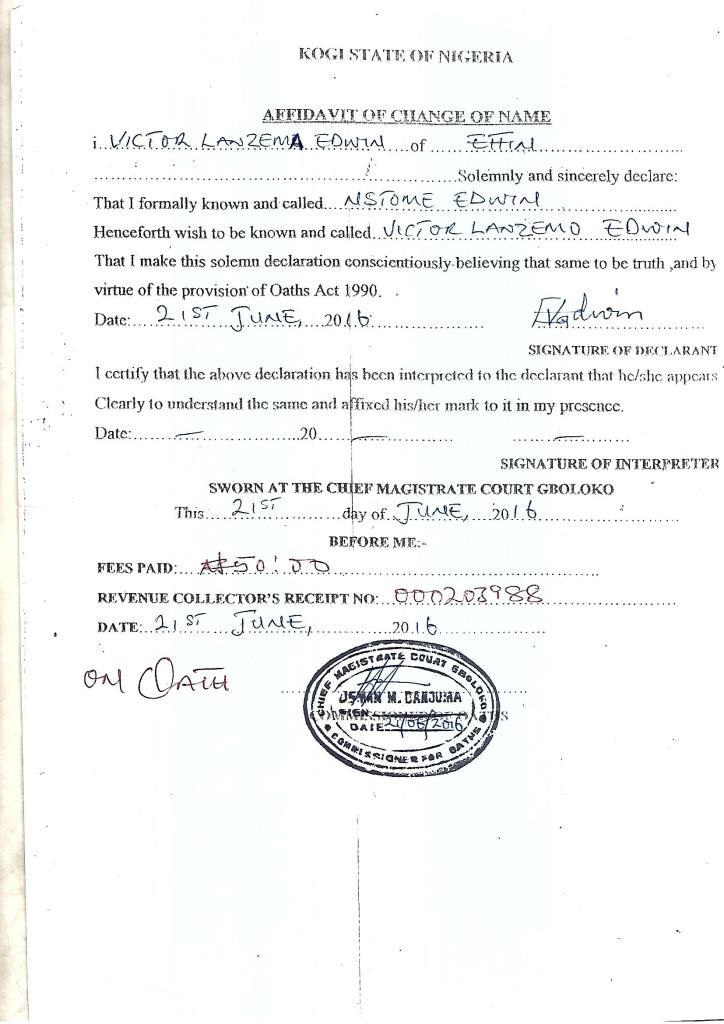 KOGI STATE OF NIGERIA
AFFIDAVIT OF CHANGE OF NAME
i VICTOR LANZEMA EDWIN of ETTIN
Solemnly and sincerely declare:
That I formally known and called NSTOME EDWIN
Henceforth wish to be known and called VICTOR LANZEMO EDWIN
That I make this solemn declaration conscientiously believing that same to be truth ,and by
virtue of the provision of Oaths Act 1990.
Date: 21ST JUNE, 2016
SIGNATURE OF DECLARANT
I certify that the above declaration has been interpreted to the declarant that he/she appears
Clearly to understand the same and affixed his/her mark to it in my presence.
Date: — 20 — —
SIGNATURE OF INTERPRETER
SWORN AT THE CHIEF MAGISTRATE COURT GBOLOKO
This 21ST day of JUNE, 2016
BEFORE ME:-
FEES PAID: ₦50:00
REVENUE COLLECTOR'S RECEIPT NO: 000203988
DATE: 21ST JUNE, 2016
ON OATH
CHIEF MAGISTRATE COURT GBOLOKO
USMAN M. DANJUMA
SIGN
DATE 21/06/2016
COMMISSIONER FOR OATHS